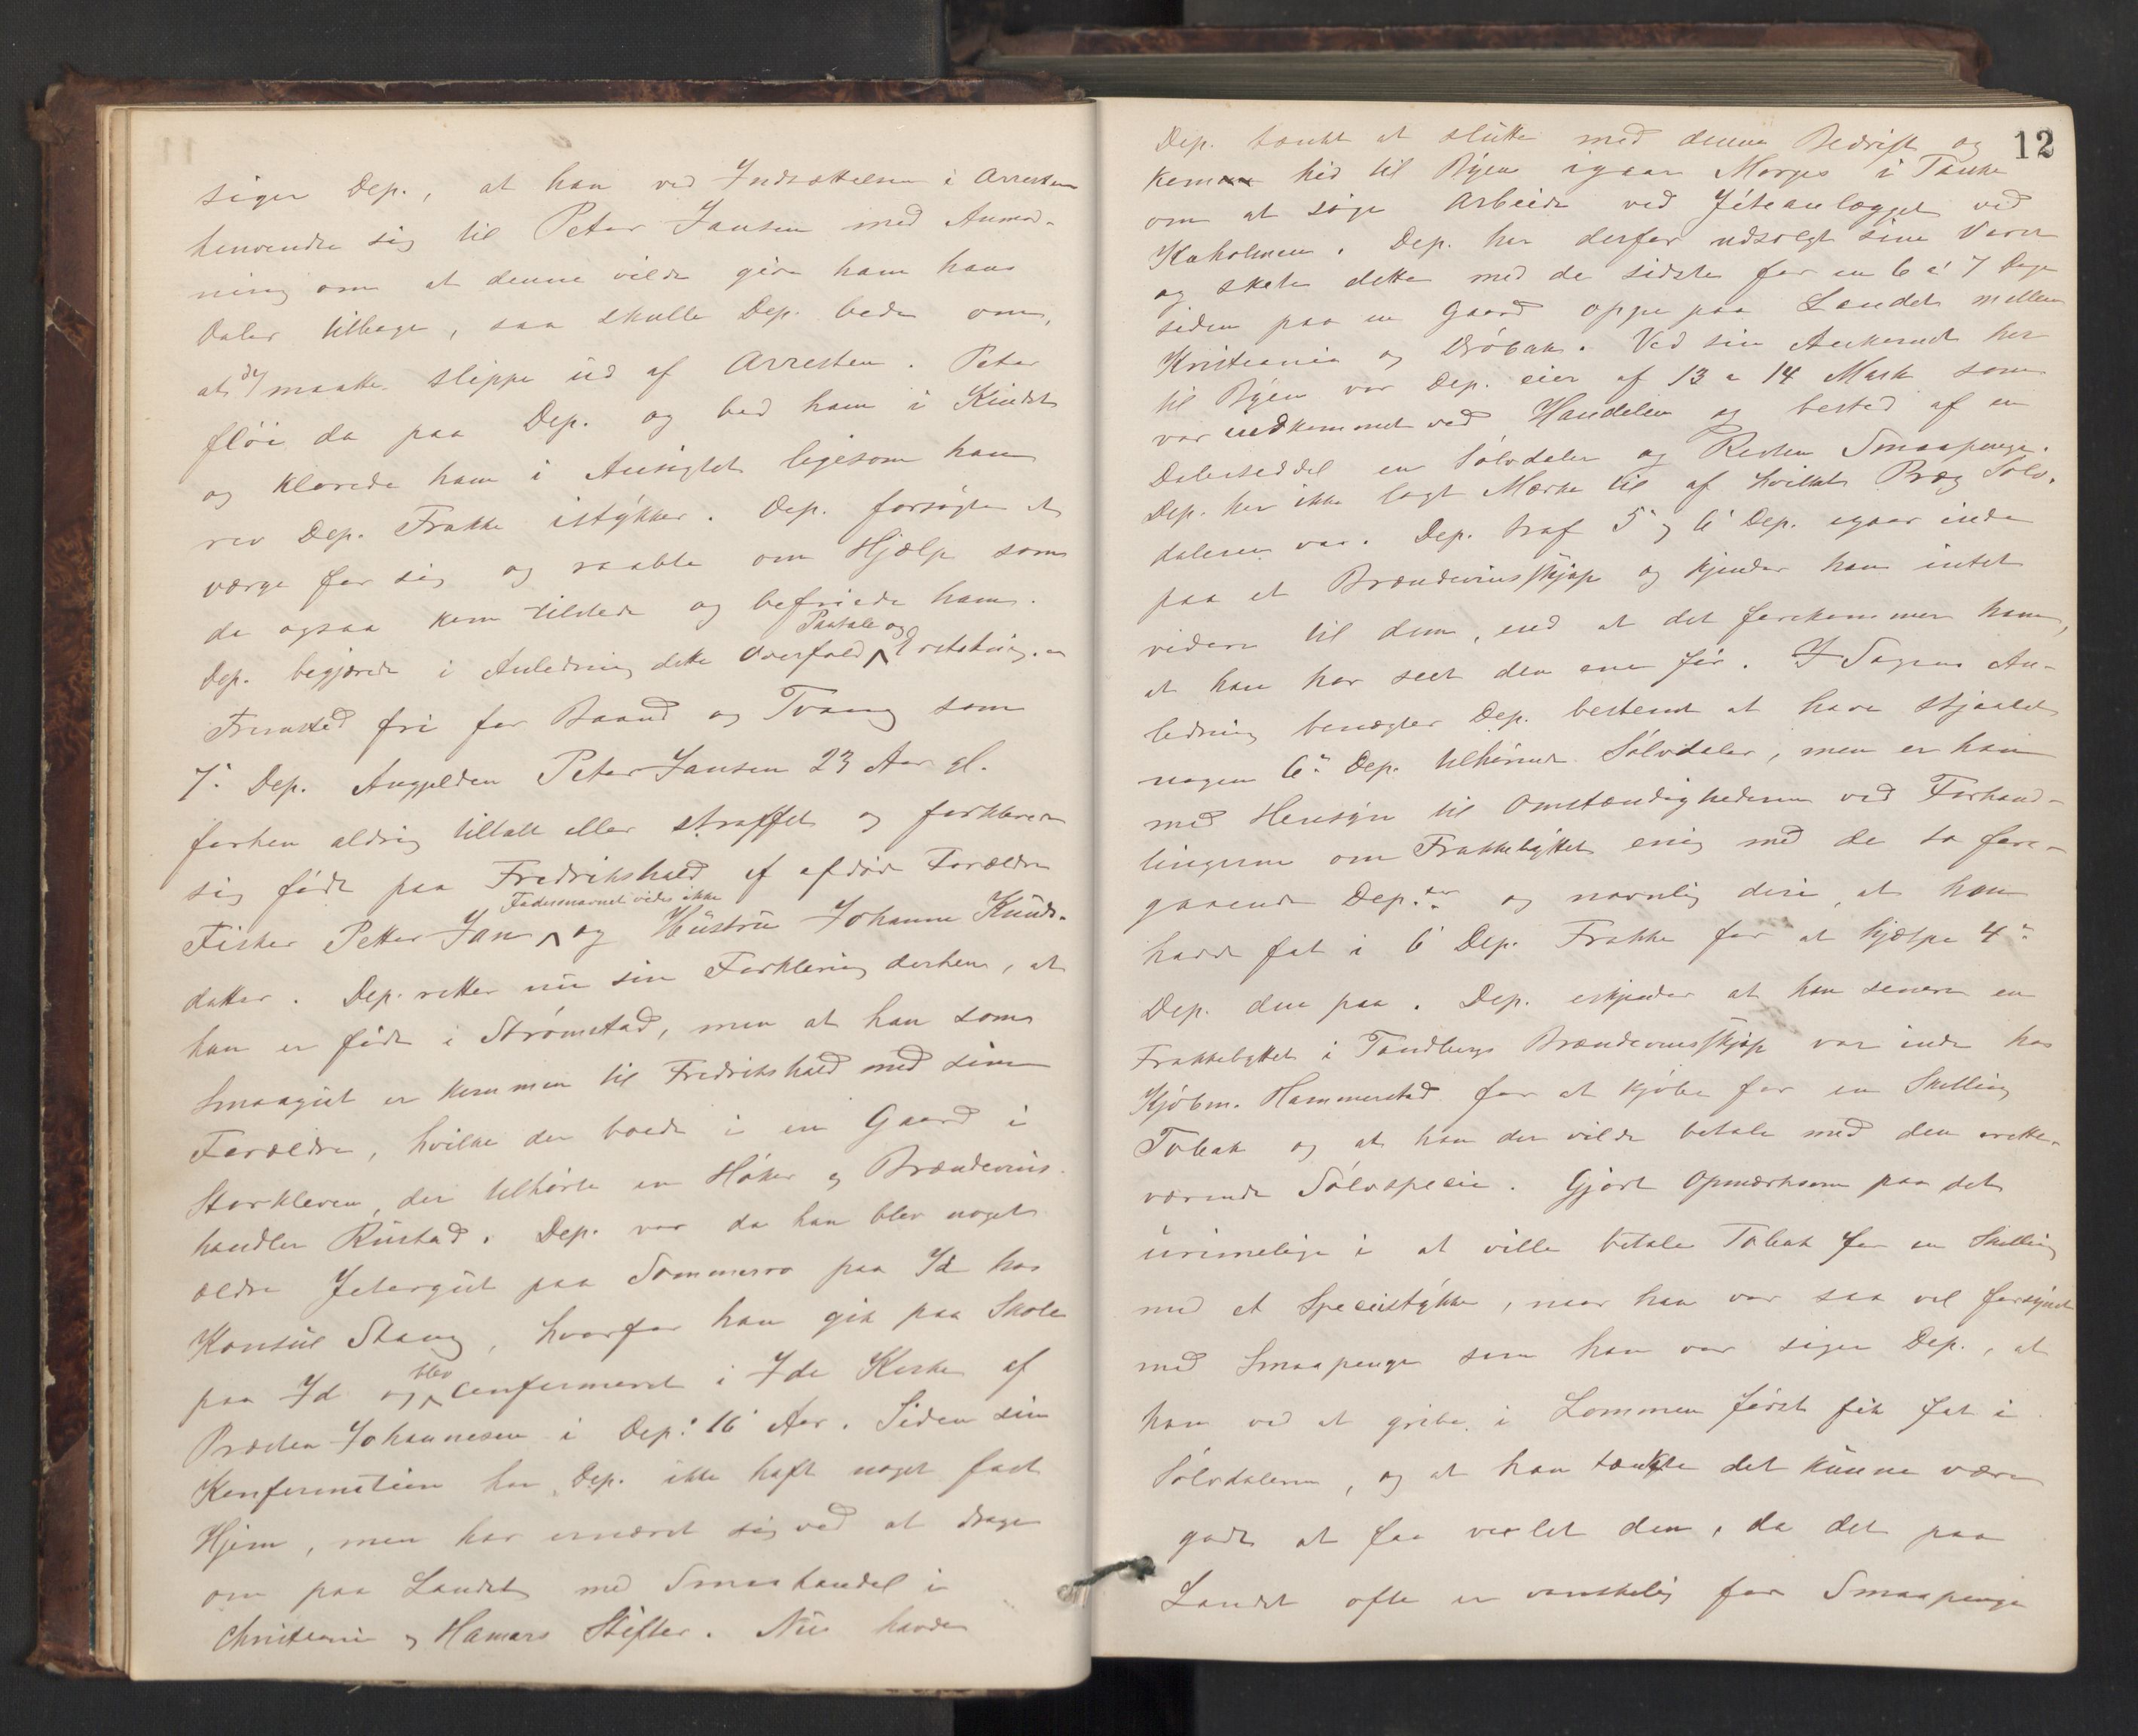 siger Dep., at han ved Indsættelsen i Arresten
henvendte sig til Peter Jansen med Anmod-
ning om at denne vilde give ham hans
Daler tilbage, saa skulde Dep. bede om,
at de maatte slippe ud af Arresten. Peter
fløi da paa Dep. og bed ham i Kindet
og klorede ham i Ansigtet ligesom han
rev Dep. Frakke istykker. Dep. forsøgte at
værge for sig og raabte om Hjælp som
da ogsaa kom tilstede og befriede ham.
Dep. begjærede i Anledning dette Overfald Paatale og Erstatning.
Fremsted fri for Baand og Tvang som
7: Dep. Angjelden Peter Jansen 23 Aar gl.
forhen aldrig tiltalt eller straffet og forklarer
sig født paa Fredrikshald af afdøde Forældre
Fisker Petter Jan Fadersnavnet vides ikke og Hustru Johanne Knuds-
datter. Dep. retter nu sin Forklaring derhen, at
han er født i Strømstad, men at han som
Smaagut er kommen til Fredrikshald med sine
Forældre, hvilke der boede i en Gaard i
Storkleven, der tilhørte en Høker og Brændevins-
handler Rustad. Dep. var da han blev noget
ældre Jetergut paa Sommerro paa Id hos
Konsul Stang, hvorfor han gik paa Skole
paa Id og blev confirmeret i Ide Kirke af
Præsten Johannesen i Dep: 16 Aar. Siden sin
Konfirmation har Dep. ikke haft noget fast
Hjem, men har ernæret sig ved at drage
om paa Landet med Smaahandel i
Christiania og Hamars Stifter. Nu havde
12
Dep. tænkt at slutte med denne Bedrift og
kom hid til Byen igaar Morges i Tanke
om at søge Arbeide ved Jéteanlægget ved
Kaholmen. Dep. har derfor udsolgt sine Varer
og skete dette med de sidste for en 6 à 7 Dage
siden paa en Gaard oppe paa Landet mellem
Kristiania og Drøbak. Ved sin Ankomst her
til Byen var Dep. eier af 13 a 14 Mark som
var indkommet ved Handelen og bestod af en
Dalerseddel en Sølvdaler og Resten Smaapenge.
Dep. har ikke lagt Mærke til af hvilket Præg Sølv-
daleren var. Dep. traf 5' og 6' Dep. igaar inde
paa et Brændevinsskjap og kjender han intet
videre til dem, end at det forekommer ham,
at han har seet den ene før. I Sagens An-
ledning benægter Dep. bestemt at have stjaalet
nogen 6: Dep. tilhørende Sølvdaler, men er han
med Hensyn til Omstændighederne ved Forhand-
lingerne om Frakkebyttet enig med de to fore-
gaaende Dep.er og navnlig deri, at han
havde fat i 6' Dep. Frakke for at hjælpe 4:
Dep. den paa. Dep. erkjender at han senere en
Frakkebyttet i Tandbergs Brændevinsskjap var inde hos
Kjøbm. Hammerstad for at kjøbe for en Skilling
Tobak og at han der vilde betale med den rette-
værende Sølvspecie. Gjort opmærksom paa det
urimelige i at ville betale Tobak for en Skilling
med et Speciestykke, naar han var saa vel forsynet
med Smaapenge som han var siger Dep., at
han ved at gribe i Lommen først fik fat i
Sølvdaleren, og at han tænkte det kunne være
godt at faa vexlet den, da det paa
Landet ofte er vanskelig for Smaapenge